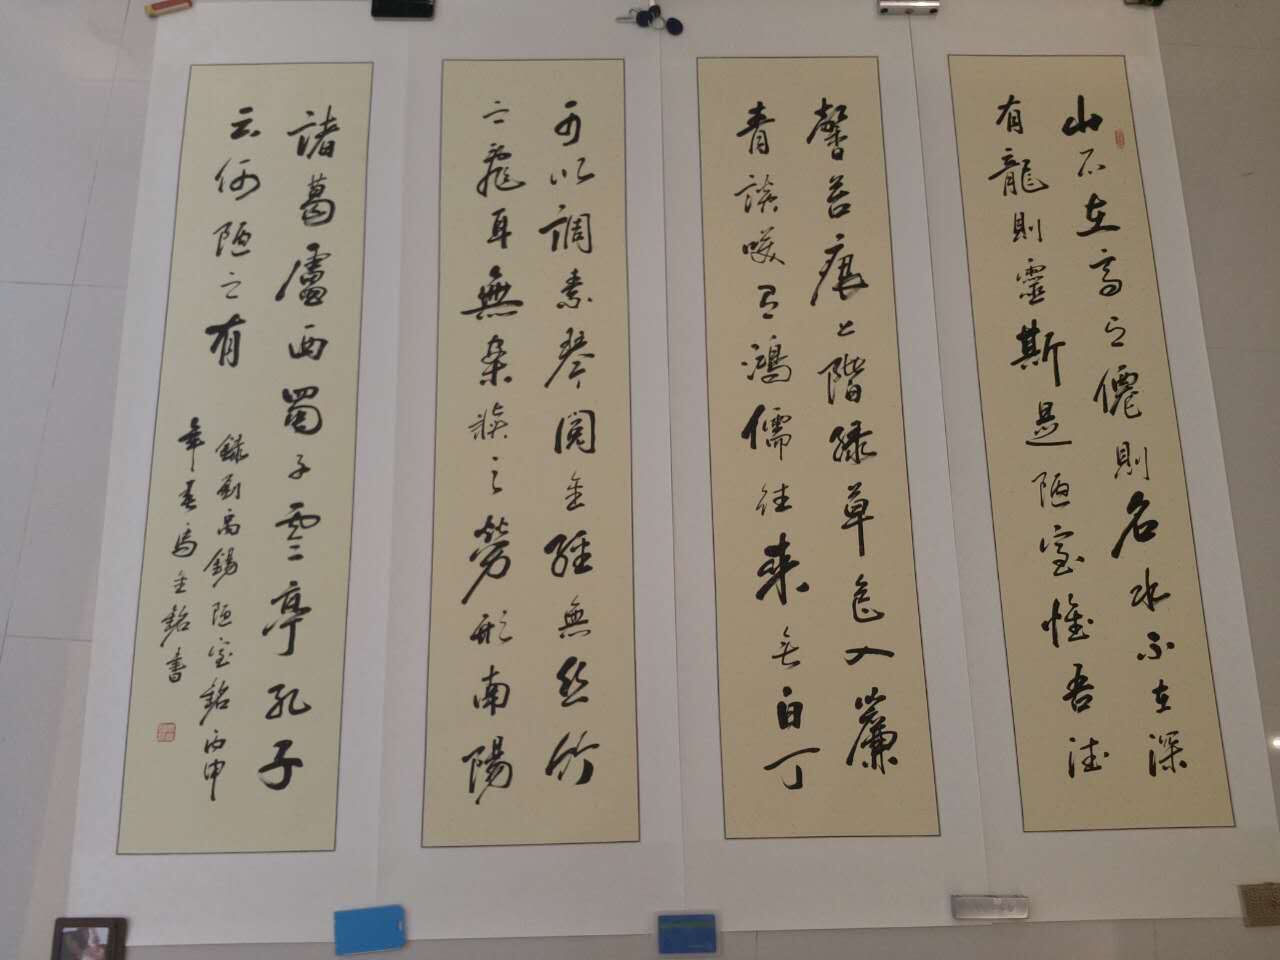 山不在高有僊則名水不在深
有龍則靈斯是陋室惟吾德
馨苔痕上階緑草色入簾
青談咲有鴻儒往來無白丁
可以調素琴閱金經無絲竹
之亂耳無案牘之勞形南陽
諸葛廬西蜀子雲亭孔子
云何陋之有
錄劉禹錫陋室銘丙申
年春馬金銘書